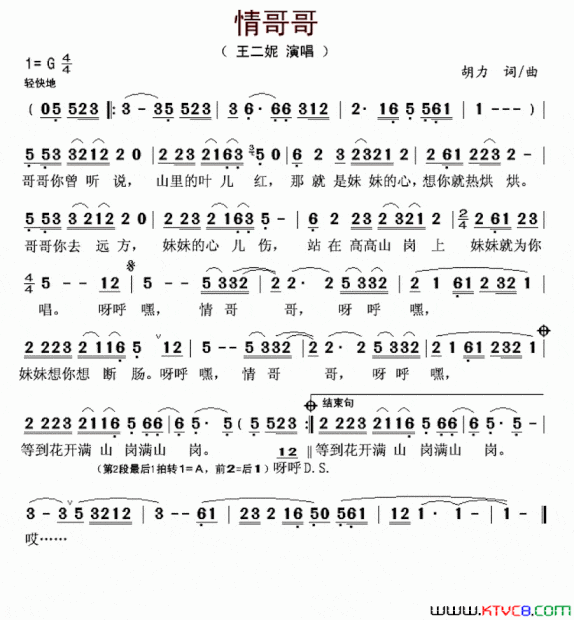 情哥哥
（ 王二妮 演唱 ）
1= G 4/4
轻快地
胡力 词/曲
( 05 523 ‖: 3 - 35 523 | 3 6· 66 312 | 2· 16 5 561 | 1 - - - )
5 53 3212 2 0 | 2 23 2163 5 0 | 6 2 3 2321 2 | 2 61 223 2 - |
哥哥你曾 听 说， 山里的叶 儿 红， 那 就 是妹 妹的心，想你就热烘 烘。
5 53 3 212 2 0 | 2 23 2 163 5 · | 6 2 23 2 321 2 | 2/4 2 61 23 |
哥哥你去 远 方， 妹妹的心 儿 伤， 站 在 高高山 岗 上 妹妹就为你
4/4 5 - - 12 | 5 - - 5332 | 2 - 2· 5 | 5 5332 2 - | 2 1 61 232 1 |
唱。 呀呼 嘿， 情 哥 哥， 呀 呼 嘿，
2 223 2 116 5 12 | 5 - - 5332 | 2 2· 5 5332 | 2 1 61 232 1 |
妹妹想你想 断 肠。呀呼 嘿， 情 哥 哥， 呀 呼 嘿，
结束句
2 223 2116 5 66 | 6 5· 5 · ( 5 523 :‖ 2 223 2116 5 66 | 6 5· 5 - |
等到花开满 山 岗满山 岗。 12 ‖ 等到花开满 山 岗满山 岗。
(第2段最后1拍转1=A，前2=后1) 呀呼D.S.
3 - 3 5 3212 | 3 - - 61 | 2 3 2 16 50 561 | 12 1· 1 - 1 - ‖
哎……
www.KTVC8.com